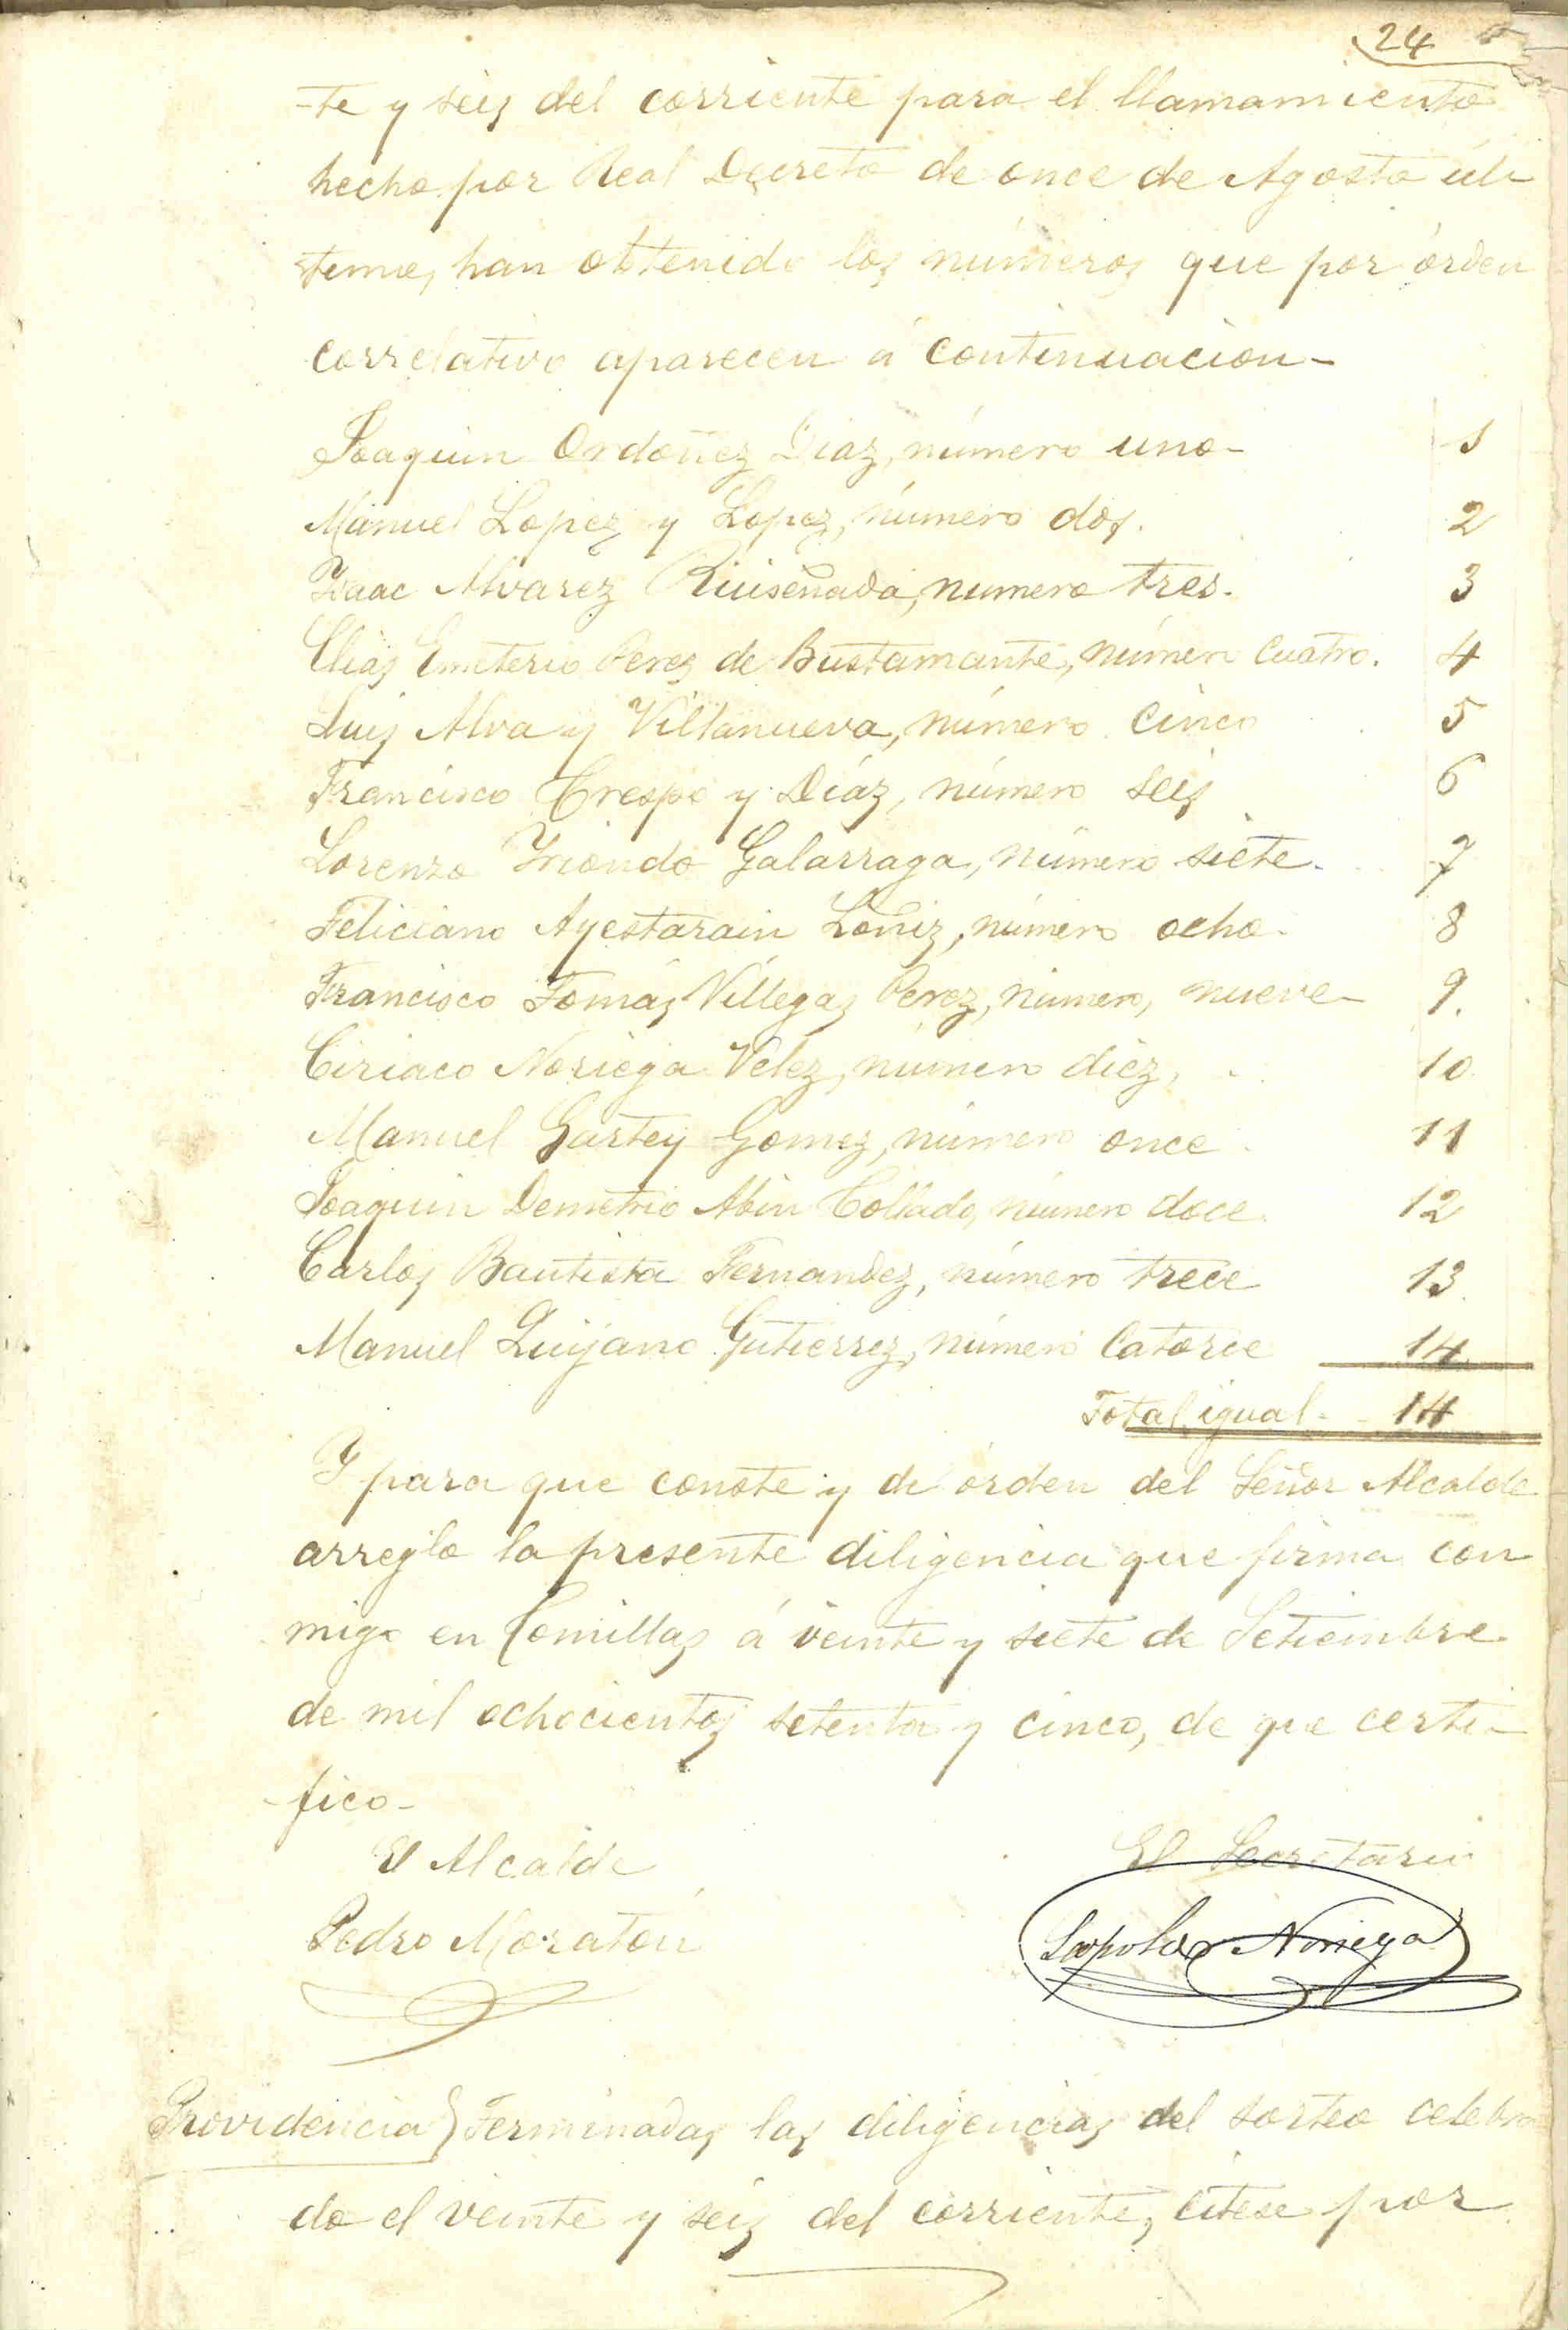 24
-te y seis del corriente para el llamamiento
hecho por Real Decreto de once de Agosto úl-
timo, han obtenido los números que por órden
correlativo aparecen á continuacion-
Joaquin Ordoñez Diaz, número uno- 1
Manuel Lopez y Lopez, número dos. 2
Ysaac Alvarez Ruiseñada, numero tres. 3
Elias Emeterio Perez de Bustamante, número cuatro. 4
Luis Alva y Villanueva, número cinco 5
Francisco Crespo y Díaz, número seis 6
Lorenzo Yriondo Galarraga, número siete. 7
Feliciano Ayestarain Loñiz, número ocho. 8
Francisco Tomás Villegas Perez, número, nueve- 9.
Ciriaco Noriega Velez, número diez, 10
Manuel Gartey Gomez, número once. 11
Joaquin Demetrio Abin Collado, número doce 12
Carlos Bautista Fernandez, número trece 13
Manuel Quijano Gutierrez, número Catorce 14
Total igual- 14
Y para que conste y de órden del Señor Alcalde
arreglo la presente diligencia que firma con-
migo en Comillas á veinte y siete de Setiembre
de mil ochocientos setenta y cinco, de que certi-
-fico-
El Alcalde El Secretario
Pedro Moraton Leopoldo Noriega
Providencia} Terminadas las diligencias del sorteo celebra
do el veinte y seis del corriente, citese por